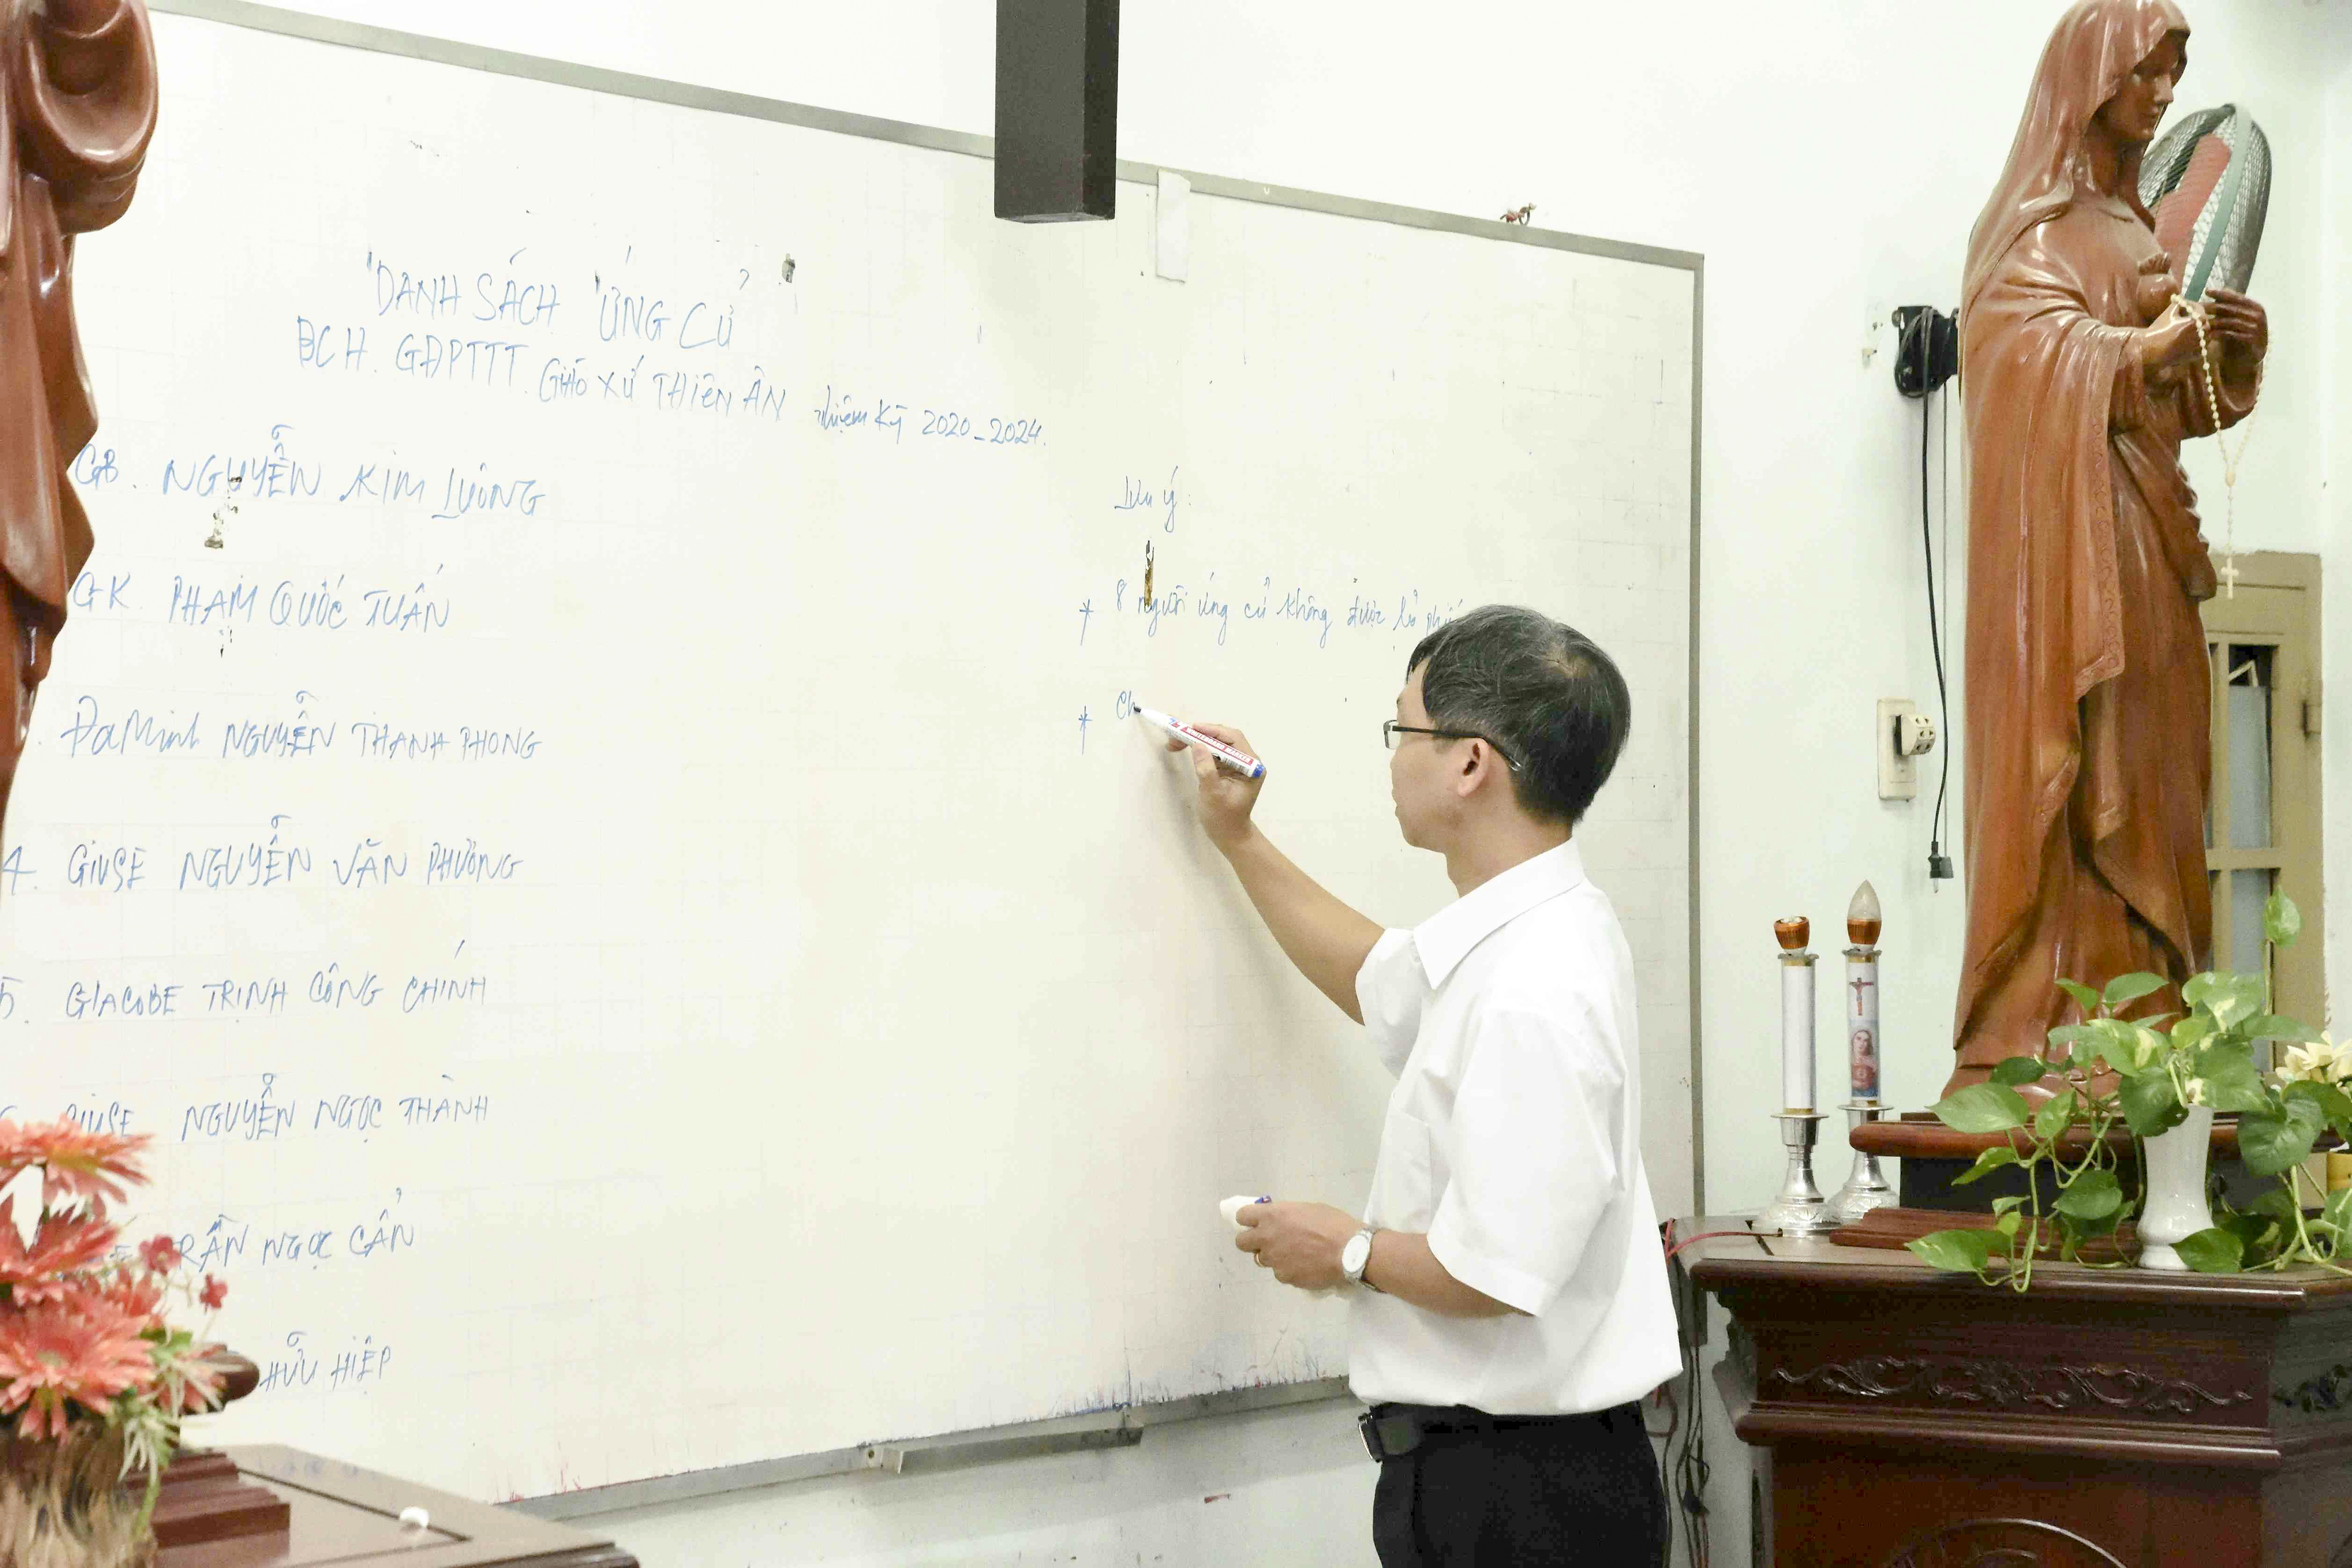 DANH SÁCH ỨNG CỬ
BCH. GĐPTTT. GIÁO XỨ THIÊN ÂN nhiệm kỳ 2020-2024.
GB. NGUYỄN KIM LƯƠNG
GK. PHẠM QUỐC TUẤN
ĐaMinh NGUYỄN THANH PHONG
4. GIUSE NGUYỄN VĂN PHƯƠNG
5. GIACOBE TRỊNH CÔNG CHÍNH
NGUYỄN NGỌC THÀNH
NGỌC CẨN
HỮU HIỆP
Lưu ý:
* 8 người ứng cử không được bỏ
* Ch